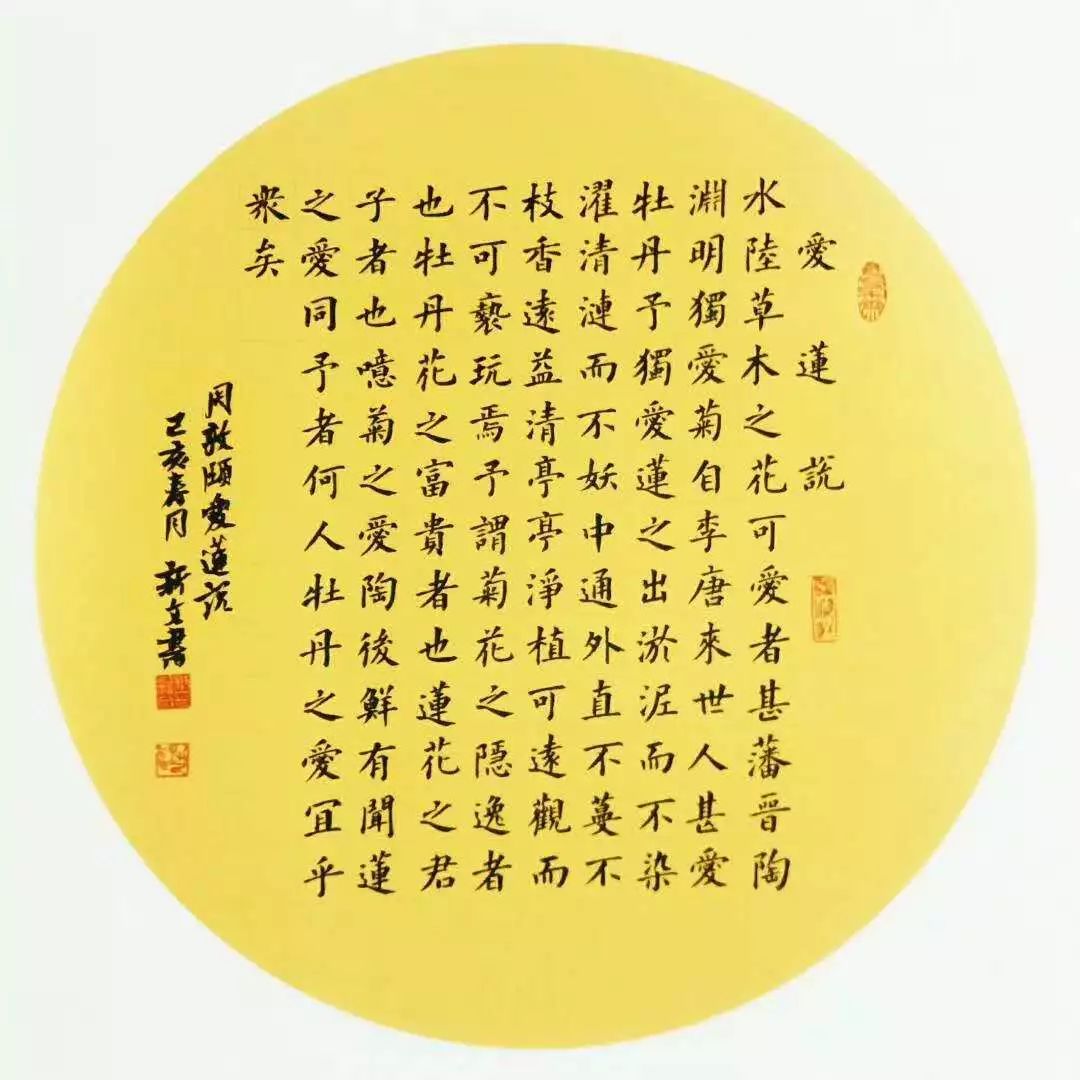 愛蓮説
水陸草木之花可愛者甚藩晉陶
淵明獨愛菊自李唐來世人甚愛
牡丹予獨愛蓮之出淤泥而不染
濯清漣而不妖中通外直不蔓不
枝香遠益清亭亭淨植可遠觀而
不可褻玩焉予謂菊花之隱逸者
也牡丹花之富貴者也蓮花之君
子者也噫菊之愛陶後鮮有聞蓮
之愛同予者何人牡丹之愛宜乎
衆矣
周敦頤愛蓮説
己亥春月 新文書